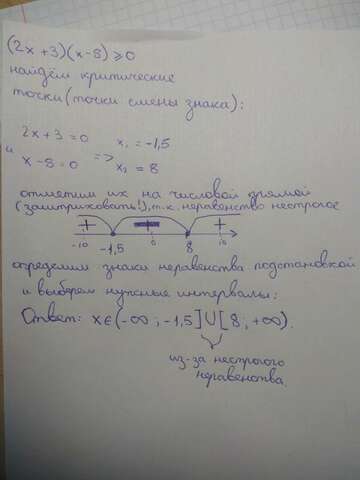 (2x+3)(x-8)⩾0
найдём критические
точки(точки смены знака):
2x+3=0 x₁=-1,5
и =>
x-8=0 x₂=8
отметим их на числовой прямой
(заштриховать!), т.к. неравенство нестрогое
+ − +
-10 -1,5 0 8 10
определим знаки неравенства подстановкой
и выберем нужные интервалы:
Ответ: x∈(-∞;-1,5]∪[8;+∞).
из-за нестрогого
неравенства.